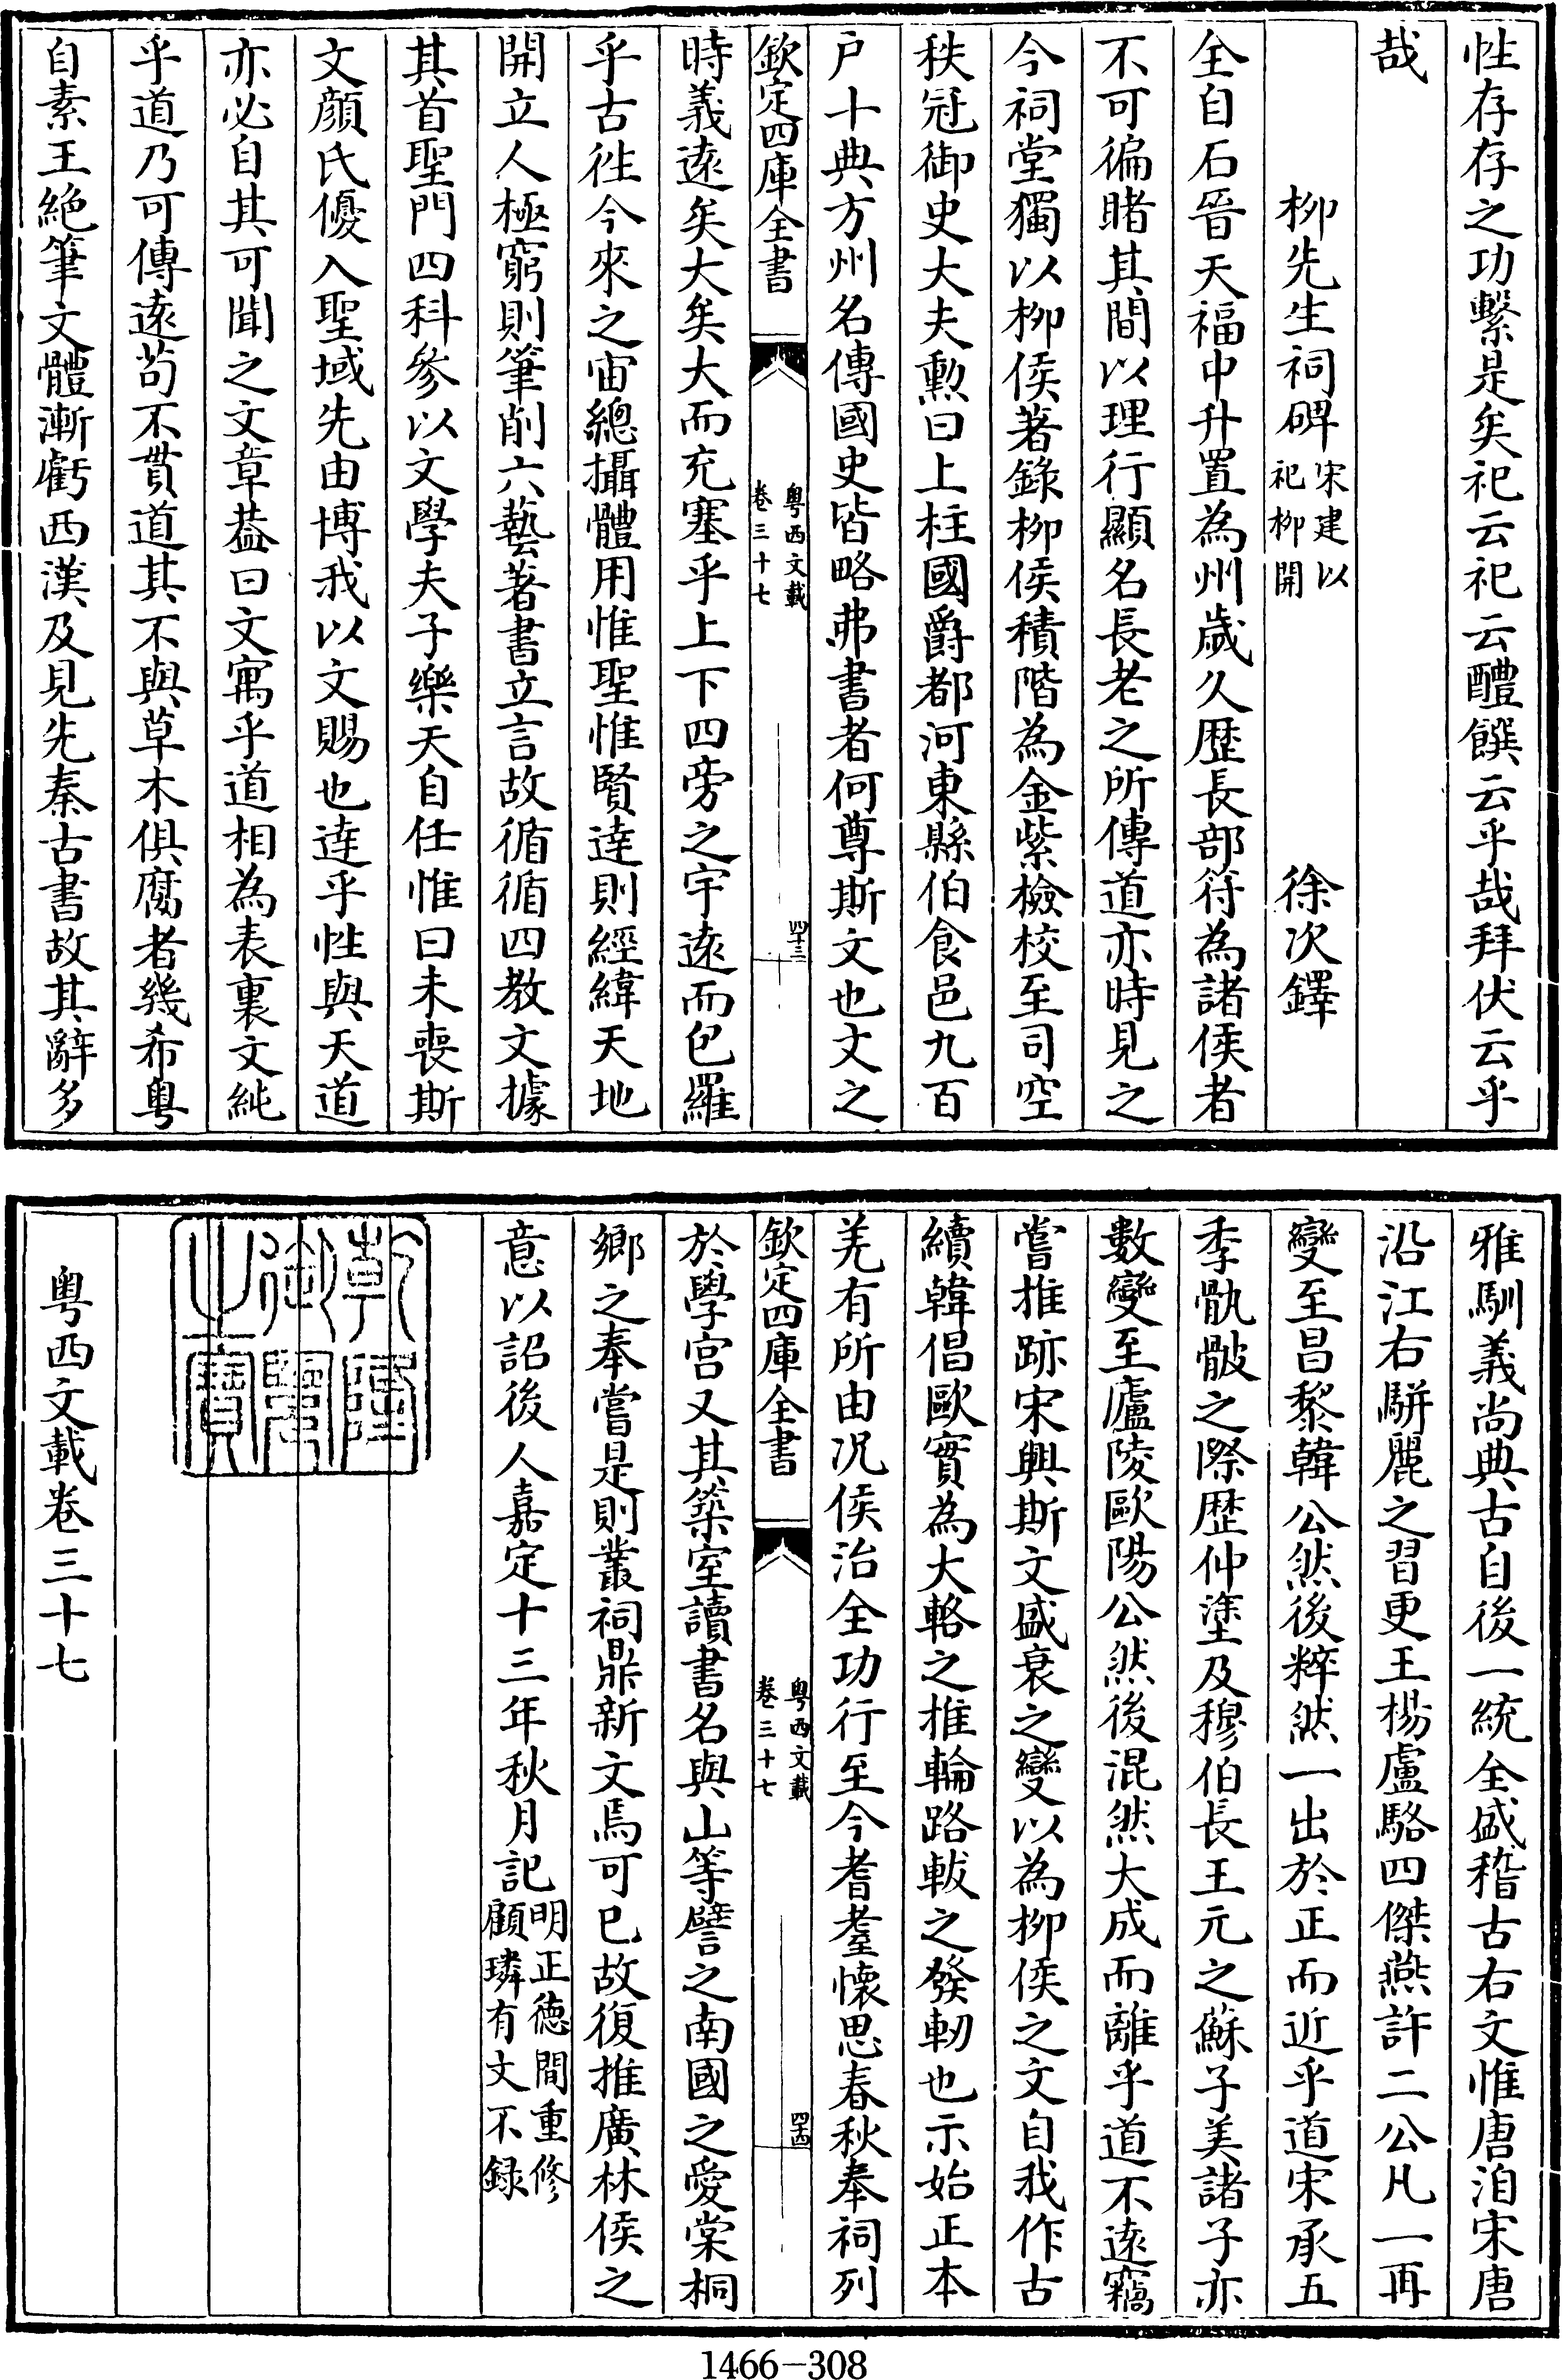 性存存之功繫是矣祀云祀云醴饌云乎哉拜伏云乎
哉
柳先生祠碑宋建以祀柳開 徐次鐸
全自石晉天福中升置為州歲久歴長部符為諸侯者
不可徧睹其間以理行顯名長老之所傳道亦時見之
今祠堂獨以柳侯著錄柳侯積階為金紫檢校至司空
秩冠御史大夫勲曰上柱國爵都河東縣伯食邑九百
户十典方州名傳國史皆略弗書者何尊斯文也文之
欽定四庫全書
粤西文載
卷三十七
四十三
時義逺矣大矣大而充塞乎上下四旁之宇逺而包羅
乎古徃今來之宙總攝體用惟聖惟賢逹則經緯天地
開立人極窮則筆削六藝著書立言故循循四教文據
其首聖門四科參以文學夫子樂天自任惟曰未喪斯
文顔氏優入聖域先由博我以文賜也逹乎性與天道
亦必自其可聞之文章葢曰文寓乎道相為表裏文純
乎道乃可傳逺苟不貫道其不與草木俱腐者幾希粤
自素王絶筆文體漸虧西漢及見先秦古書故其辭多
雅馴義尚典古自後一統全盛稽古右文惟唐洎宋唐
沿江右駢麗之習更王楊盧駱四傑燕許二公凡一再
變至昌黎韓公然後粹然一出於正而近乎道宋承五
季骩骳之際歴仲塗及穆伯長王元之蘇子美諸子亦
數變至廬陵歐陽公然後混然大成而離乎道不逺竊
嘗推跡宋興斯文盛衰之變以為柳侯之文自我作古
續韓倡歐實為大輅之推輪路軷之發軔也示始正本
羌有所由况侯治全功行至今耆耋懐思春秋奉祠列
欽定四庫全書
粤西文載
卷三十七
四十四
於學宫又其築室讀書名與山等譬之南國之愛棠桐
鄉之奉嘗是則叢祠鼎新文焉可已故復推廣林侯之
意以詔後人嘉定十三年秋月記明正德間重修顧璘有文不録
乾隆御覽之寶
粤西文載卷三十七
1466—308